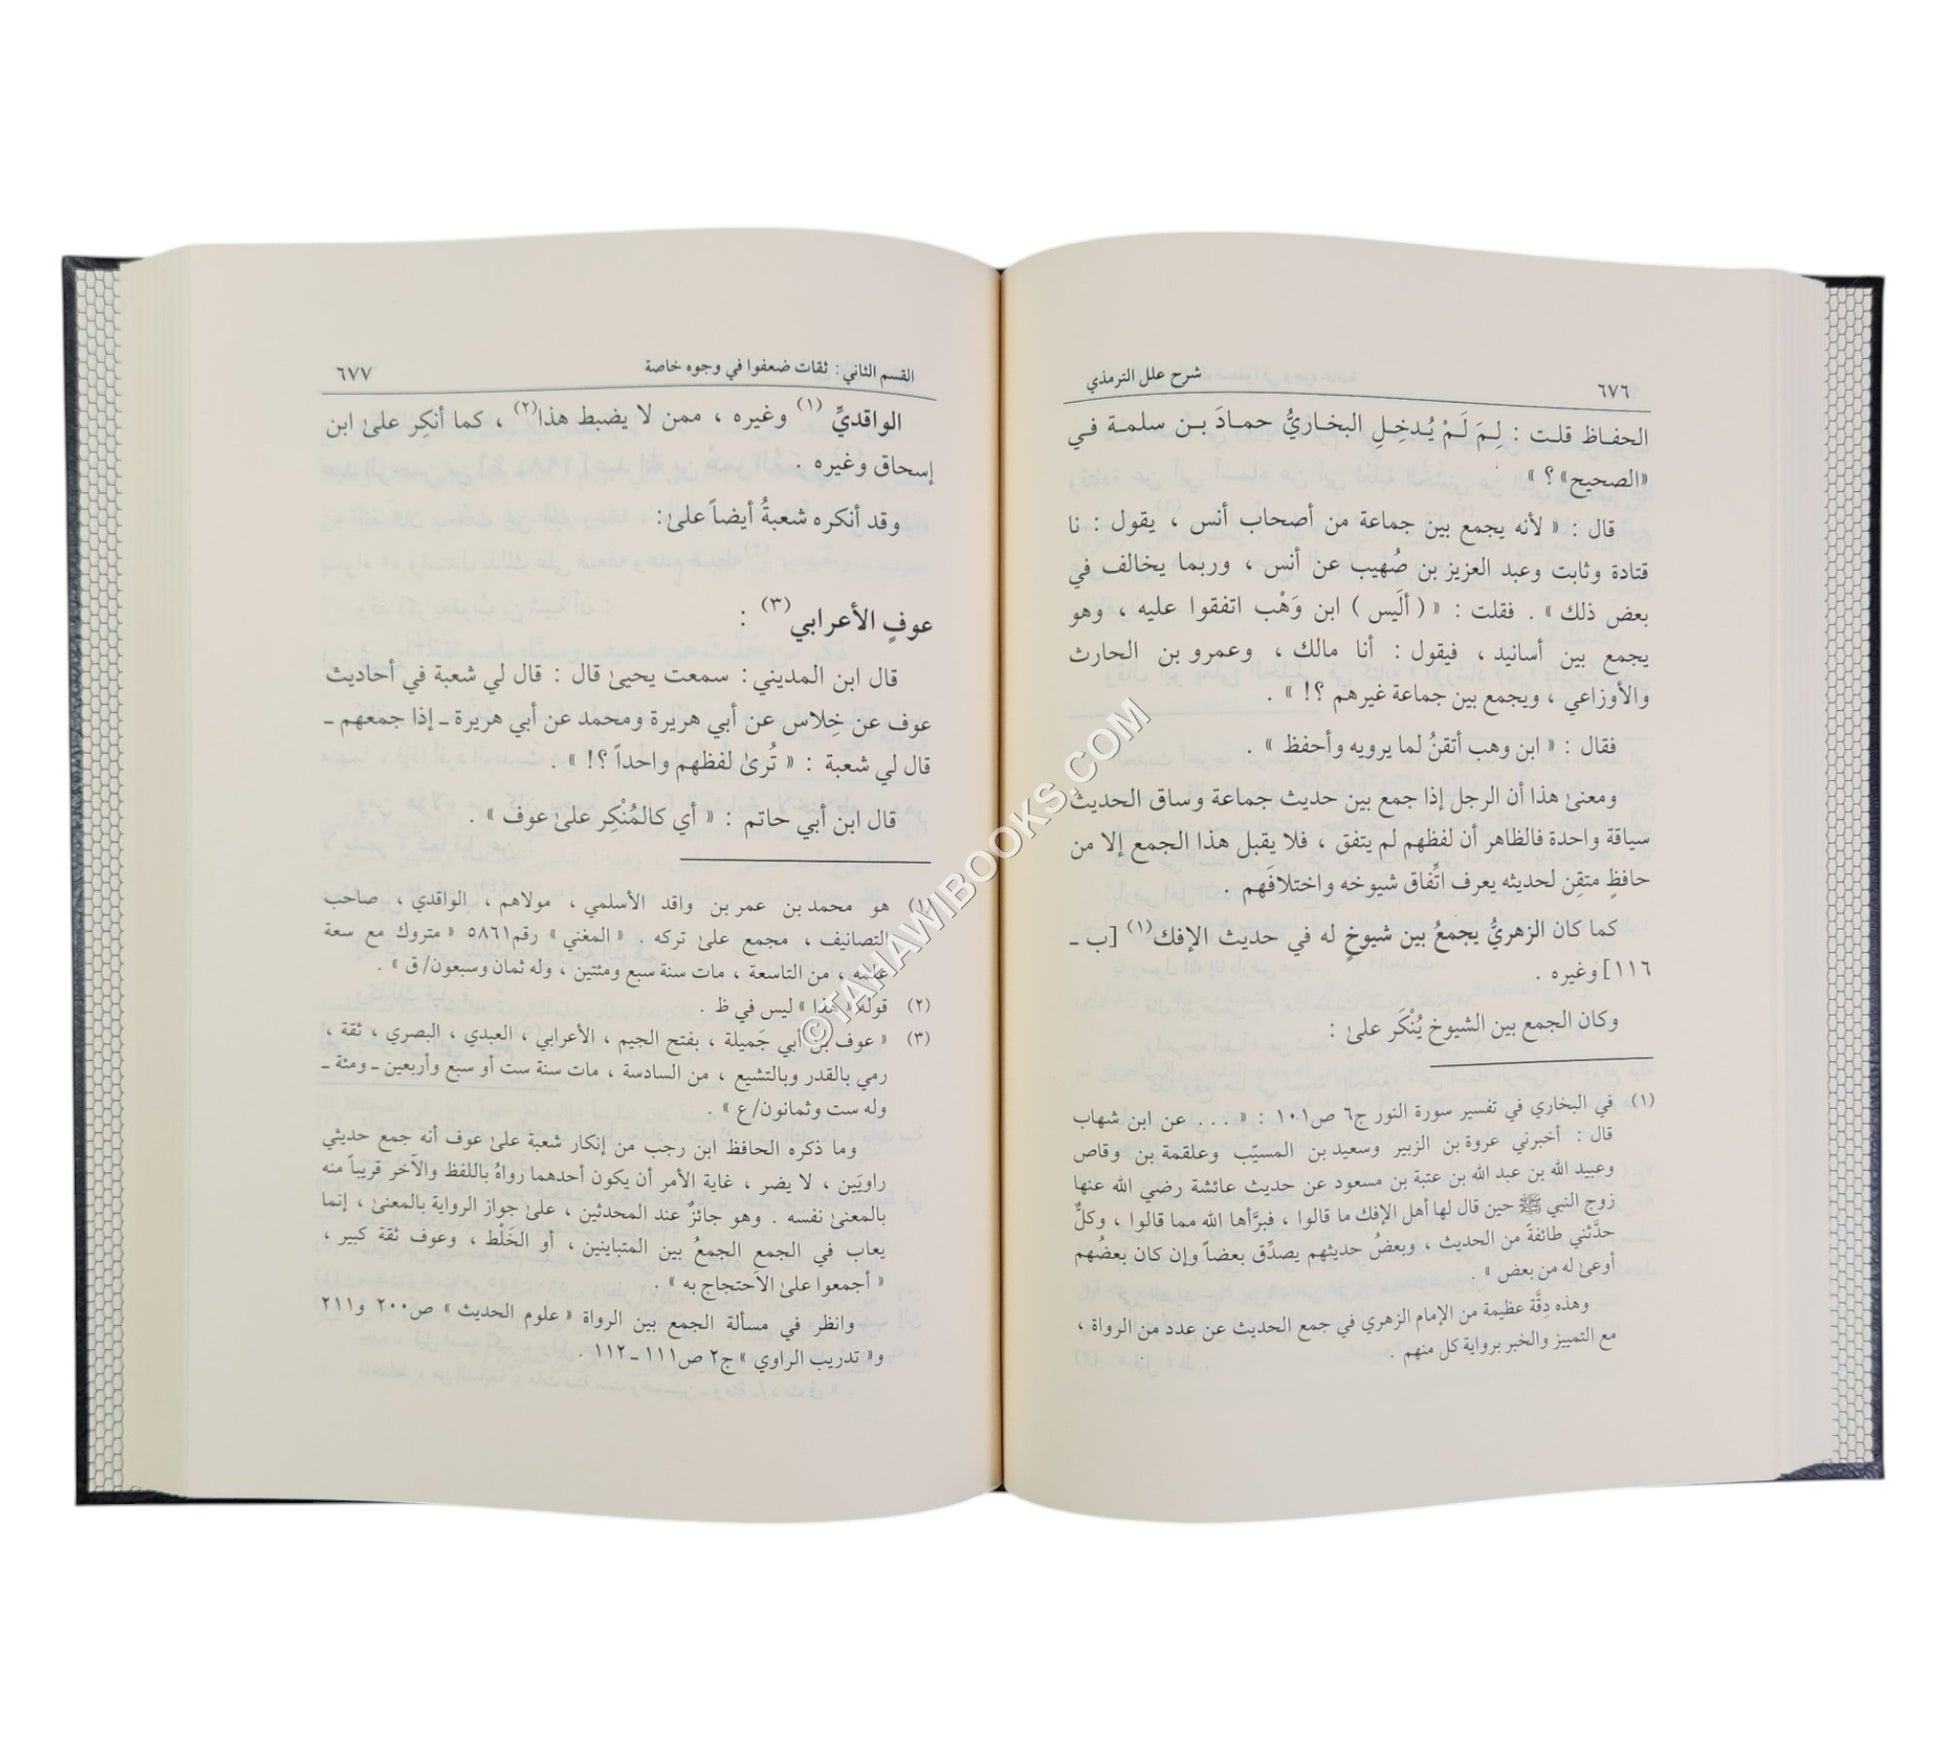 ٦٧٦
شرح علل الترمذي
الحفاظ قلت : لِمَ لَمْ يُدخِلِ البخاريُّ حمادَ بن سلمة في
«الصحيح» ؟ »
قال : « لأنه يجمع بين جماعة من أصحاب أنس ، يقول : نا
قتادة وثابت وعبد العزيز بن صُهيب عن أنس ، وربما يخالف في
بعض ذلك » . فقلت : « ( أَلَيس ) ابن وَهْب اتفقوا عليه ، وهو
يجمع بين أسانيد ، فيقول : أنا مالك ، وعمرو بن الحارث
والأوزاعي ، ويجمع بين جماعة غيرهم ؟! » .
فقال : « ابن وهب أتقنُ لما يرويه وأحفظ » .
ومعنىٰ هذا أن الرجل إذا جمع بين حديث جماعة وساق الحديث
سياقة واحدة فالظاهر أن لفظهم لم يتفق ، فلا يقبل هذا الجمع إلا من
حافظٍ متقِن لحديثه يعرف اتِّفاق شيوخه واختلافَهم .
كما كان الزهريُّ يجمعُ بين شيوخٍ له في حديث الإفك(١) [ب ـ
١١٦] وغيره .
وكان الجمع بين الشيوخ يُنْكَر علىٰ :
(١) في البخاري في تفسير سورة النور ج٦ ص١٠١ : « ... عن ابن شهاب
قال : أخبرني عروة بن الزبير وسعيد بن المسيّب وعلقمة بن وقاص
وعبيد الله بن عبد الله بن عتبة بن مسعود عن حديث عائشة رضي الله عنها
زوج النبي ﷺ حين قال لها أهل الإفك ما قالوا ، فبرَّأها الله مما قالوا ، وكلٌّ
حدَّثني طائفةً من الحديث ، وبعضُ حديثهم يصدِّق بعضاً وإن كان بعضُهم
أوعىٰ له من بعض » .
وهذه دِقَّة عظيمة من الإمام الزهري في جمع الحديث عن عدد من الرواة ،
مع التمييز والخبر برواية كل منهم .
القسم الثاني : ثقات ضعفوا في وجوه خاصة
٦٧٧
الواقديِّ (١) وغيره ، ممن لا يضبط هذا(٢) ، كما أنكِر علىٰ ابن
إسحاق وغيره .
وقد أنكره شعبةُ أيضاً علىٰ:
عوفٍ الأعرابي (٣) :
قال ابن المديني : سمعت يحيىٰ قال : قال لي شعبة في أحاديث
عوف عن خِلاس عن أبي هريرة ومحمد عن أبي هريرة ـ إذا جمعهم ـ
قال لي شعبة : « تُرىٰ لفظهم واحداً ؟! » .
قال ابن أبي حاتم : « أي كالمُنْكِر علىٰ عوف » .
(١) هو محمد بن عمر بن واقد الأسلمي ، مولاهم ، الواقدي ، صاحب
التصانيف ، مجمع علىٰ تركه . « المغني » رقم٥٨٦١ « متروك مع سعة
علمه ، من التاسعة ، مات سنة سبع ومئتين ، وله ثمان وسبعون/ ق » .
(٢) قوله « هذا » ليس في ظ .
(٣) « عوف بن أبي جَميلة ، بفتح الجيم ، الأعرابي ، العبدي ، البصري ، ثقة ،
رمي بالقدر وبالتشيع ، من السادسة ، مات سنة ست أو سبع وأربعين ـ ومئة ـ
وله ست وثمانون/ ع » .
وما ذكره الحافظ ابن رجب من إنكار شعبة علىٰ عوف أنه جمع حديثي
راويَين ، لا يضر ، غاية الأمر أن يكون أحدهما رواهُ باللفظ والآخر قريباً منه
بالمعنىٰ نفسه . وهو جائزٌ عند المحدثين ، علىٰ جواز الرواية بالمعنىٰ ، إنما
يعاب في الجمع الجمعُ بين المتباينين ، أو الخَلْط ، وعوف ثقة كبير ،
« أجمعوا علىٰ الاحتجاج به » .
وانظر في مسألة الجمع بين الرواة « علوم الحديث » ص٢٠٠ و٢١١
و« تدريب الراوي » ج٢ ص١١١ ـ ١١٢ .
©TAHAWIBOOKS.COM